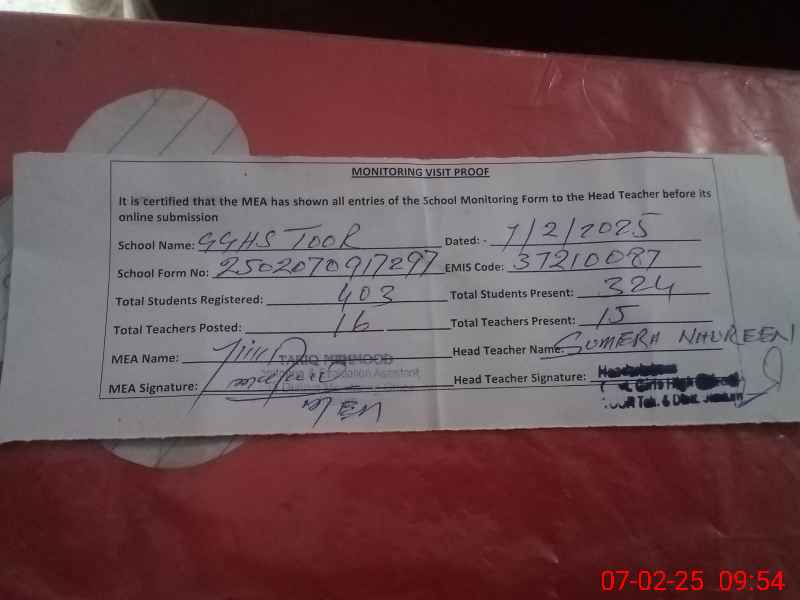 MONITORING VISIT PROOF
It is certified that the MEA has shown all entries of the School Monitoring Form to the Head Teacher before its
online submission
School Name: GGHS TOOR Dated: - 7/2/2025
School Form No: 2502070917297 EMIS Code: 37210087
Total Students Registered: 403 Total Students Present: 324
Total Teachers Posted: 16 Total Teachers Present: 15
MEA Name: TARIQ MEHMOOD Head Teacher Name: SUMERA NAUREEN
Monitoring & Evaluation Assistant
MEA Signature: Head Teacher Signature: Headmistress
Govt. Girls High School
TOOR Teh. & Distt. Jhelum
07-02-25 09:54